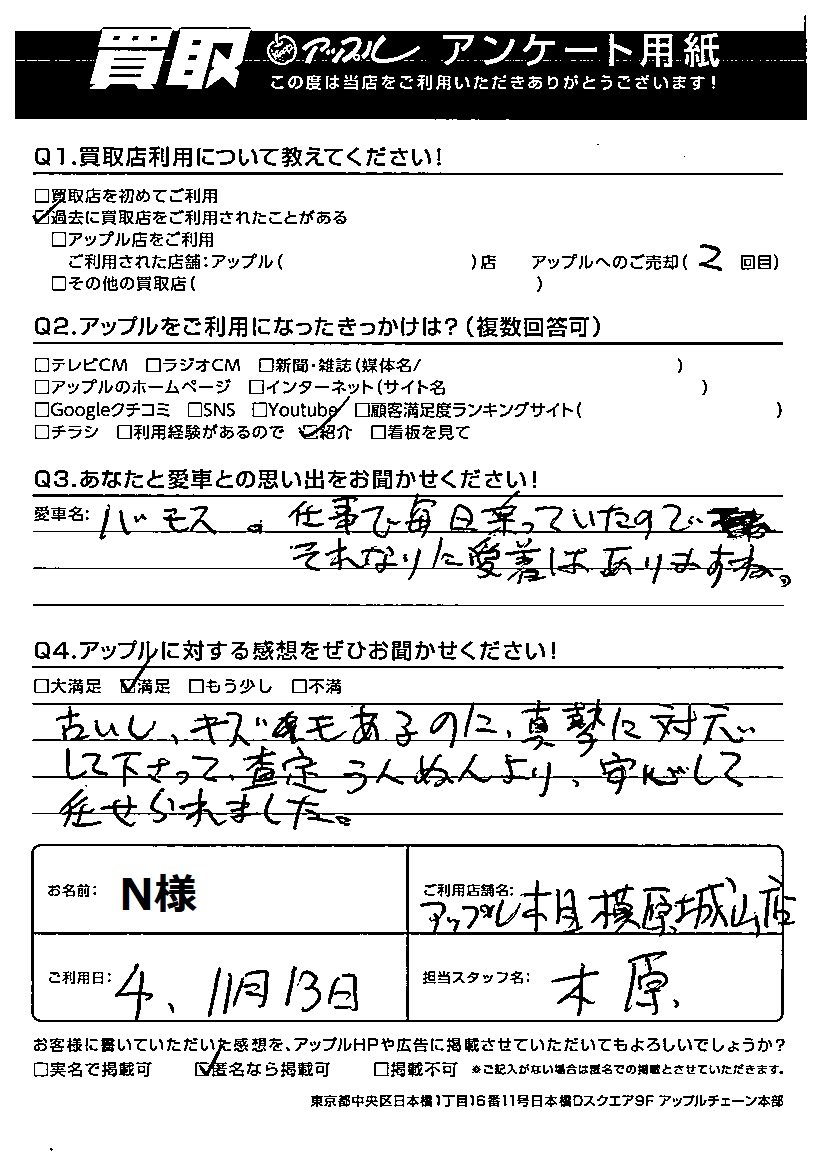 買取 アップル アンケート用紙
この度は当店をご利用いただきありがとうございます!
Q1.買取店利用について教えてください!
□買取店を初めてご利用
☑過去に買取店をご利用されたことがある
□アップル店をご利用
ご利用された店舗:アップル( )店 アップルへのご売却( 2 回目)
□その他の買取店( )
Q2.アップルをご利用になったきっかけは?(複数回答可)
□テレビCM □ラジオCM □新聞・雑誌(媒体名/ )
□アップルのホームページ □インターネット(サイト名 )
□Googleクチコミ □SNS □Youtube □顧客満足度ランキングサイト( )
□チラシ □利用経験があるので ☑紹介 □看板を見て
Q3.あなたと愛車との思い出をお聞かせください!
愛車名: バモス 。 仕事で毎日乗っていたので
それなりに愛着はありますね。
Q4.アップルに対する感想をぜひお聞かせください!
□大満足 ☑満足 □もう少し □不満
古いし、キズもあるのに、真摯に対応
して下さって、査定うんぬんより、安心して
任せられました。
お名前: N様
ご利用店舗名: アップル相模原城山店
ご利用日: 4、11月13日
担当スタッフ名: 木原
お客様に書いていただいた感想を、アップルHPや広告に掲載させていただいてもよろしいでしょうか?
□実名で掲載可 ☑匿名なら掲載可 □掲載不可 ※ご記入がない場合は匿名での掲載とさせていただきます。
東京都中央区日本橋1丁目16番11号日本橋Dスクエア9F アップルチェーン本部